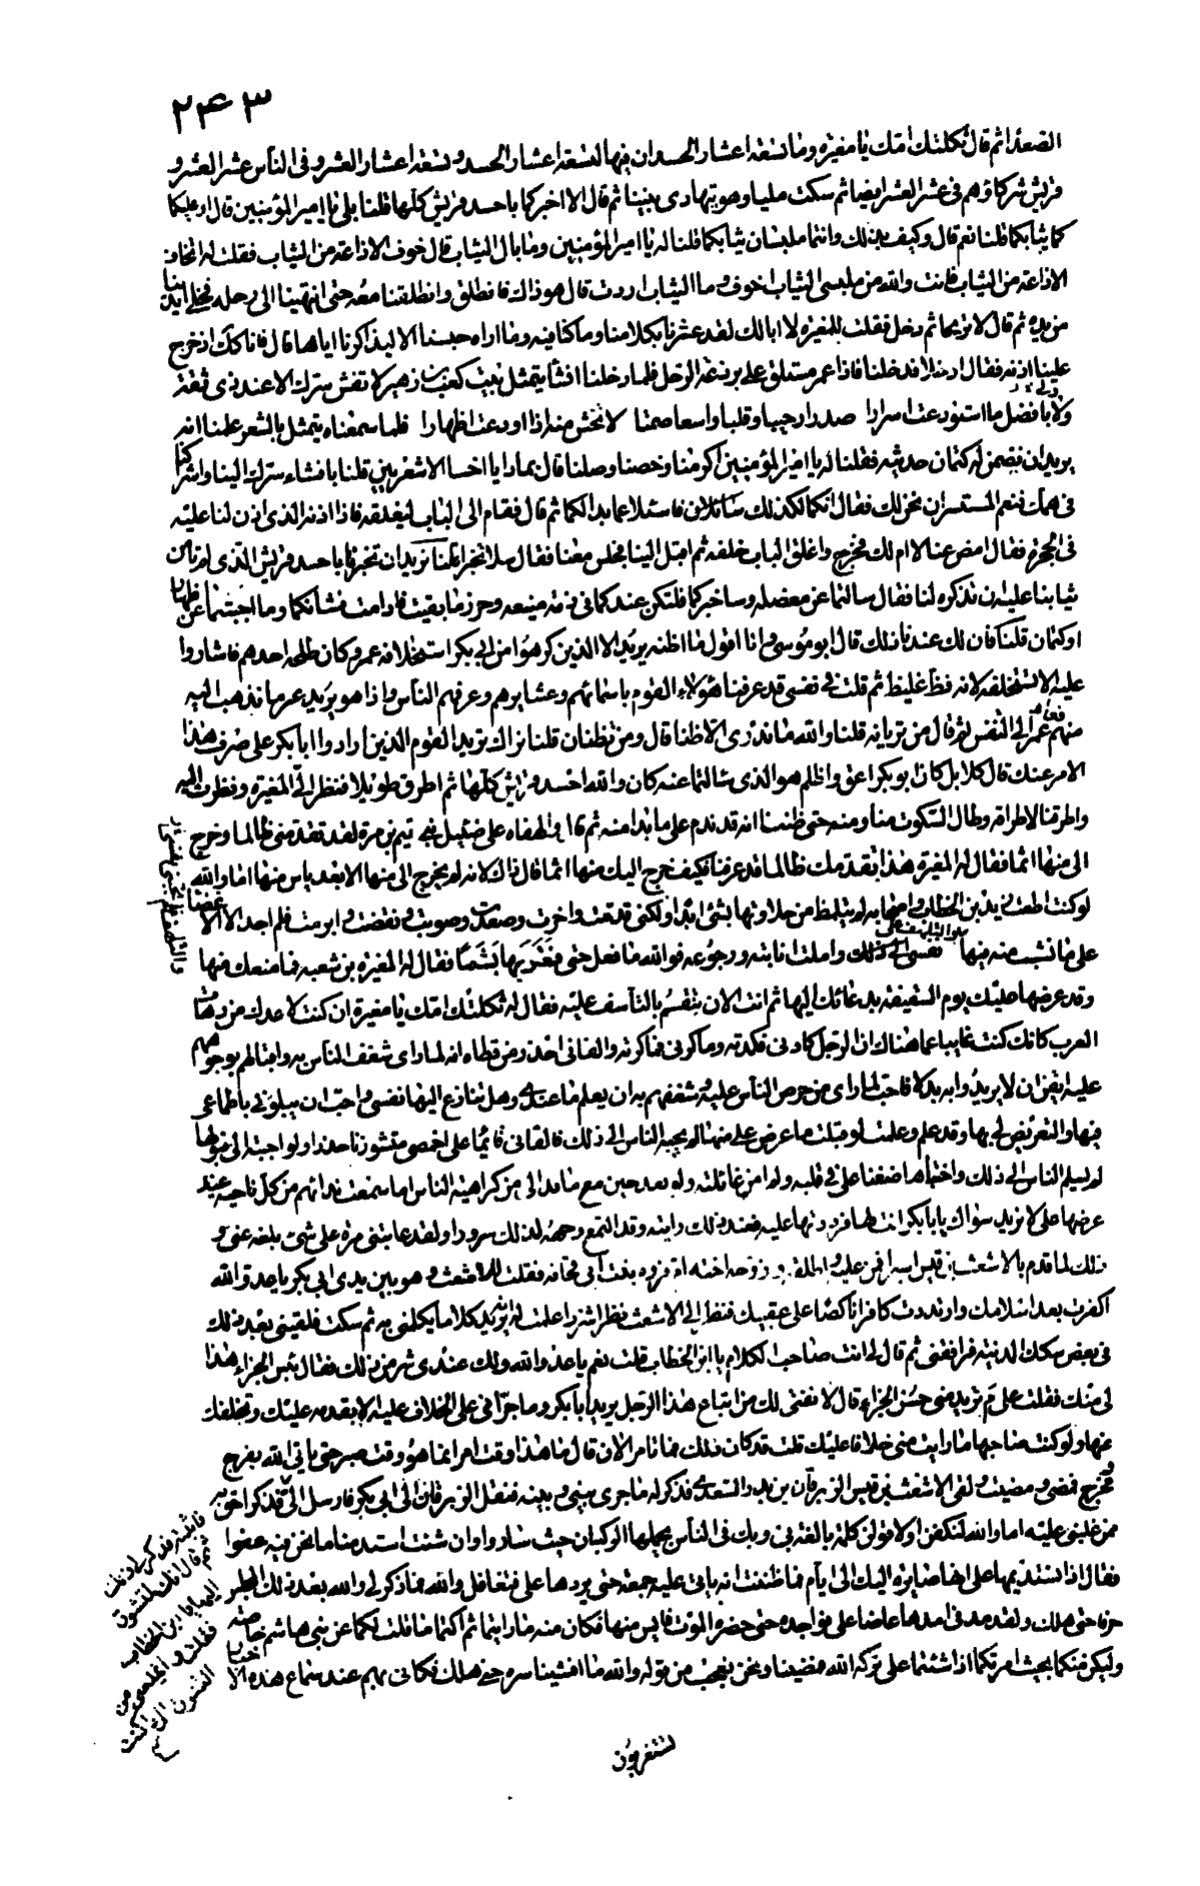 ٢٤٣
الصعداء ثم قال ثكلتك امك يا مغيرة وما تسعة اعشار الحسد ان فيها لتسعة اعشار الحسد وتسعة اعشار العشر وفى الناس عشر العشر و
قريش شركاؤهم فى عشر العشر ايضا ثم سكت مليا وهو يتهادى بيننا ثم قال الا اخبركما باحسد قريش كلها قلنا بلى يا امير المؤمنين قال اوعليكما
ثيابكما قلنا نعم قال وكيف بذلك وانتما ملبسان ثيابكما قلنا له يا امير المؤمنين وما بال الثياب قال خوف الاذاعة من الثياب فقلت له اتخاف
الاذاعة من الثياب فانت والله من ملبسى الثياب اخوف وما الثياب اردت قال هو ذاك فانطلق وانطلقنا معه حتى انتهينا الى رحله فخلى ايدينا
من يده ثم قال لا تريما ثم دخل فقلت للمغيرة لا ابا لك لقد عثرنا بكلامنا وما كنا فيه وما اراه حبسنا الا ليذاكرنا اياها قال فانا كك اذ خرج
علينا اذنه فقال ادخلا فدخلنا فاذا عمر مستلق على برذعة الرحل فلما دخلنا انشأ يتمثل ببيت كعب بن زهير لا تفش سرك الا عند ذى ثقة
ولا بافضل ما استودعت اسرارا صدرا رحيبا وقلبا واسعا صمتا لا تخش منه اذا اودعت اظهارا فلما سمعناه يتمثل بالشعر علمنا انه
يريد ان نضمن له كتمان حديثه فقلنا له يا امير المؤمنين اكرمنا وخصنا وصلنا قال بماذا يا اخا الاشعريين قلنا بافشاء سرك الينا واشركنا
فى همك فنعم المستسران نحن لك فقال انكما لكذلك فاسئلا عما بدا لكما ثم قال فقام الى الباب ليغلقه فاذا اذنه الذى اذن لنا عليه
فى الحجرة فقال امض عنا لا ام لك فخرج واغلق الباب خلفه ثم اقبل الينا فجلس معنا فقال سلا تخبرا قلنا نريد ان تخبرنا باحسد قريش الذى لم تأمن
ثيابنا عليه ان تذكره لنا فقال سالتما عن معضلة وساخبركما فليكن عندكما فى ذمة منيعة وحرز ما بقيت فاذا مت فشأنكما وما احببتما من اظهار
او كتمان قلنا فان لك عندنا ذلك قال ابو موسى وانا اقول ما اظنه يريد الا الذين كرهوا من ابى بكر استخلافه عمر وكان طلحة احدهم فاشاروا
عليه الا يستخلفه لانه فظ غليظ ثم قلت فى نفسى قد عرفنا هؤلاء القوم باسمائهم وعشايرهم وعرفهم الناس واذا هو يريد غير ما نذهب اليه
منهم فعاد عمر الى التنفس ثم قال من تريانه قلنا والله ما ندرى الا ظنا قال ومن تظنان قلنا نراك تريد القوم الذين ارادوا ابا بكر على صرف هذا
الامر عنك قال كلا بل كان ابو بكر اعق واظلم هو الذى سالتما عنه كان والله احسد قريش كلها ثم اطرق طويلا فنظر الى المغيرة ونظرت اليه
واطرقنا لاطراقه وطال السكوت منا ومنه حتى ظننا انه قد ندم على ما بدا منه ثم قال والهفاه على ضئيل بنى تيم بن مرة لقد تقدمنى ظالما وخرج
الى منها اثما فقال له المغيرة هذا تقدمك ظالما قد عرفنا فكيف خرج اليك منها اثما قال ذاك لانه لم يخرج الى منها الا بعد ياس منها اما والله
لو كنت اطعت يزيد بن الخطاب واصحابه لم يتلمظ من حلاوتها بشئ ابدا ولكنى قدمت واخرت وصعدت وصوبت ونقضت وابرمت فلم اجد الا الاغضاء
على ما نشب منه فيها والتلهف على نفسى واملت انابته ورجوعه فوالله ما فعل حتى فغر بها بشما فقال له المغيرة بن شعبة فما منعك منها
وقد عرضها عليك يوم السقيفة بدعائك اليها ثم انت الان تنقم بالتأسف عليه فقال له ثكلتك امك يا مغيرة ان كنت لاعدك من دهاة
العرب كانك كنت غايبا عما هناك ان الرجل كادنى فكدته وماكرنى فماكرته والفانى احذر من قطاة انه لما راى شغف الناس به واقبالهم بوجوههم
عليه ايقن ان لا يريدوا به بدلا فاحب لما راى من حرص الناس عليه وشغفهم به ان يعلم ما عندى وهل تنازع اليها نفسى واحب ان يبلونى باطماعى
فيها والتعريض لى بها وقد علم وعلمت لو قبلت ما عرض على منها لم يجبه الناس الى ذلك فالفانى قائما على اخمصى متشوزا حذرا ولو اجبته الى قبولها
لم يسلم الناس الى ذلك واختباها ضغنا على فى قلبه ولم امن غائلته ولو بعد حين مع ما بدا لى من كراهية الناس اما سمعت نداءهم من كل ناحية عند
عرضها على لا نريد سواك يا ابا بكر انت لها فرددتها عليه فعند ذلك رايته وقد التمع وجهه لذلك سرورا ولقد عاتبنى مرة على شئ بلغه عنى و
ذلك لما قدم بالاشعث بن قيس اسيرا فمن عليه واطلقه وزوجه اخته ام فروة بنت ابى قحافة فقلت للاشعث وهو بين يدى ابى بكر يا عدو الله
اكفرت بعد اسلامك وارتددت كافرا ناكصا على عقبيك فنظر الى الاشعث نظرا شزرا علمت انه يريد كلاما يكلمنى به ثم سكت فلقينى بعد ذلك
فى بعض سكك المدينة فرافقنى ثم قال لى انت صاحب الكلام يا ابن الخطاب قلت نعم يا عدو الله ولك عندى شر من ذلك فقال بئس الجزاء هذا
لى منك فقلت على م تريد منى حسن الجزاء قال لانفتى لك من اتباع هذا الرجل يريد ابا بكر وما جرأنى على الخلاف عليه الا تقدمه عليك وتخلفك
عنها ولو كنت صاحبها ما رايت منى خلافا عليك قلت قد كان ذلك فما تامر الان قال ما هذا وقت امر انما هو وقت صبر حتى ياتى الله بفرج
ومخرج فمضى ومضيت ولقى الاشعث بن قيس الزبرقان بن بدر السعدى فذكر له ما جرى بينى وبينه فنقل الزبرقان الى ابى بكر فارسل الى
فقال اذا نستديمها على انها صايرة اليك الى ايام فما ظننت انه ياتى عليه جمعة حتى يردها على فتغافل والله فما ذكر لى والله بعد ذلك المجلس
حرفا حتى هلك ولقد مد فى امدها عاضا على نواجذه حتى حضره الموت فايس منها فكان منه ما رايتما ثم اكتما ما قلت لكما عن بنى هاشم خاصة
وليكن منكما بحيث امرتكما اذا شئتما على بركة الله فمضينا ونحن نعجب من قوله والله ما افشينا سره حتى هلك فكانى بهم عند سماع هذه الاخبار
لتستغربون